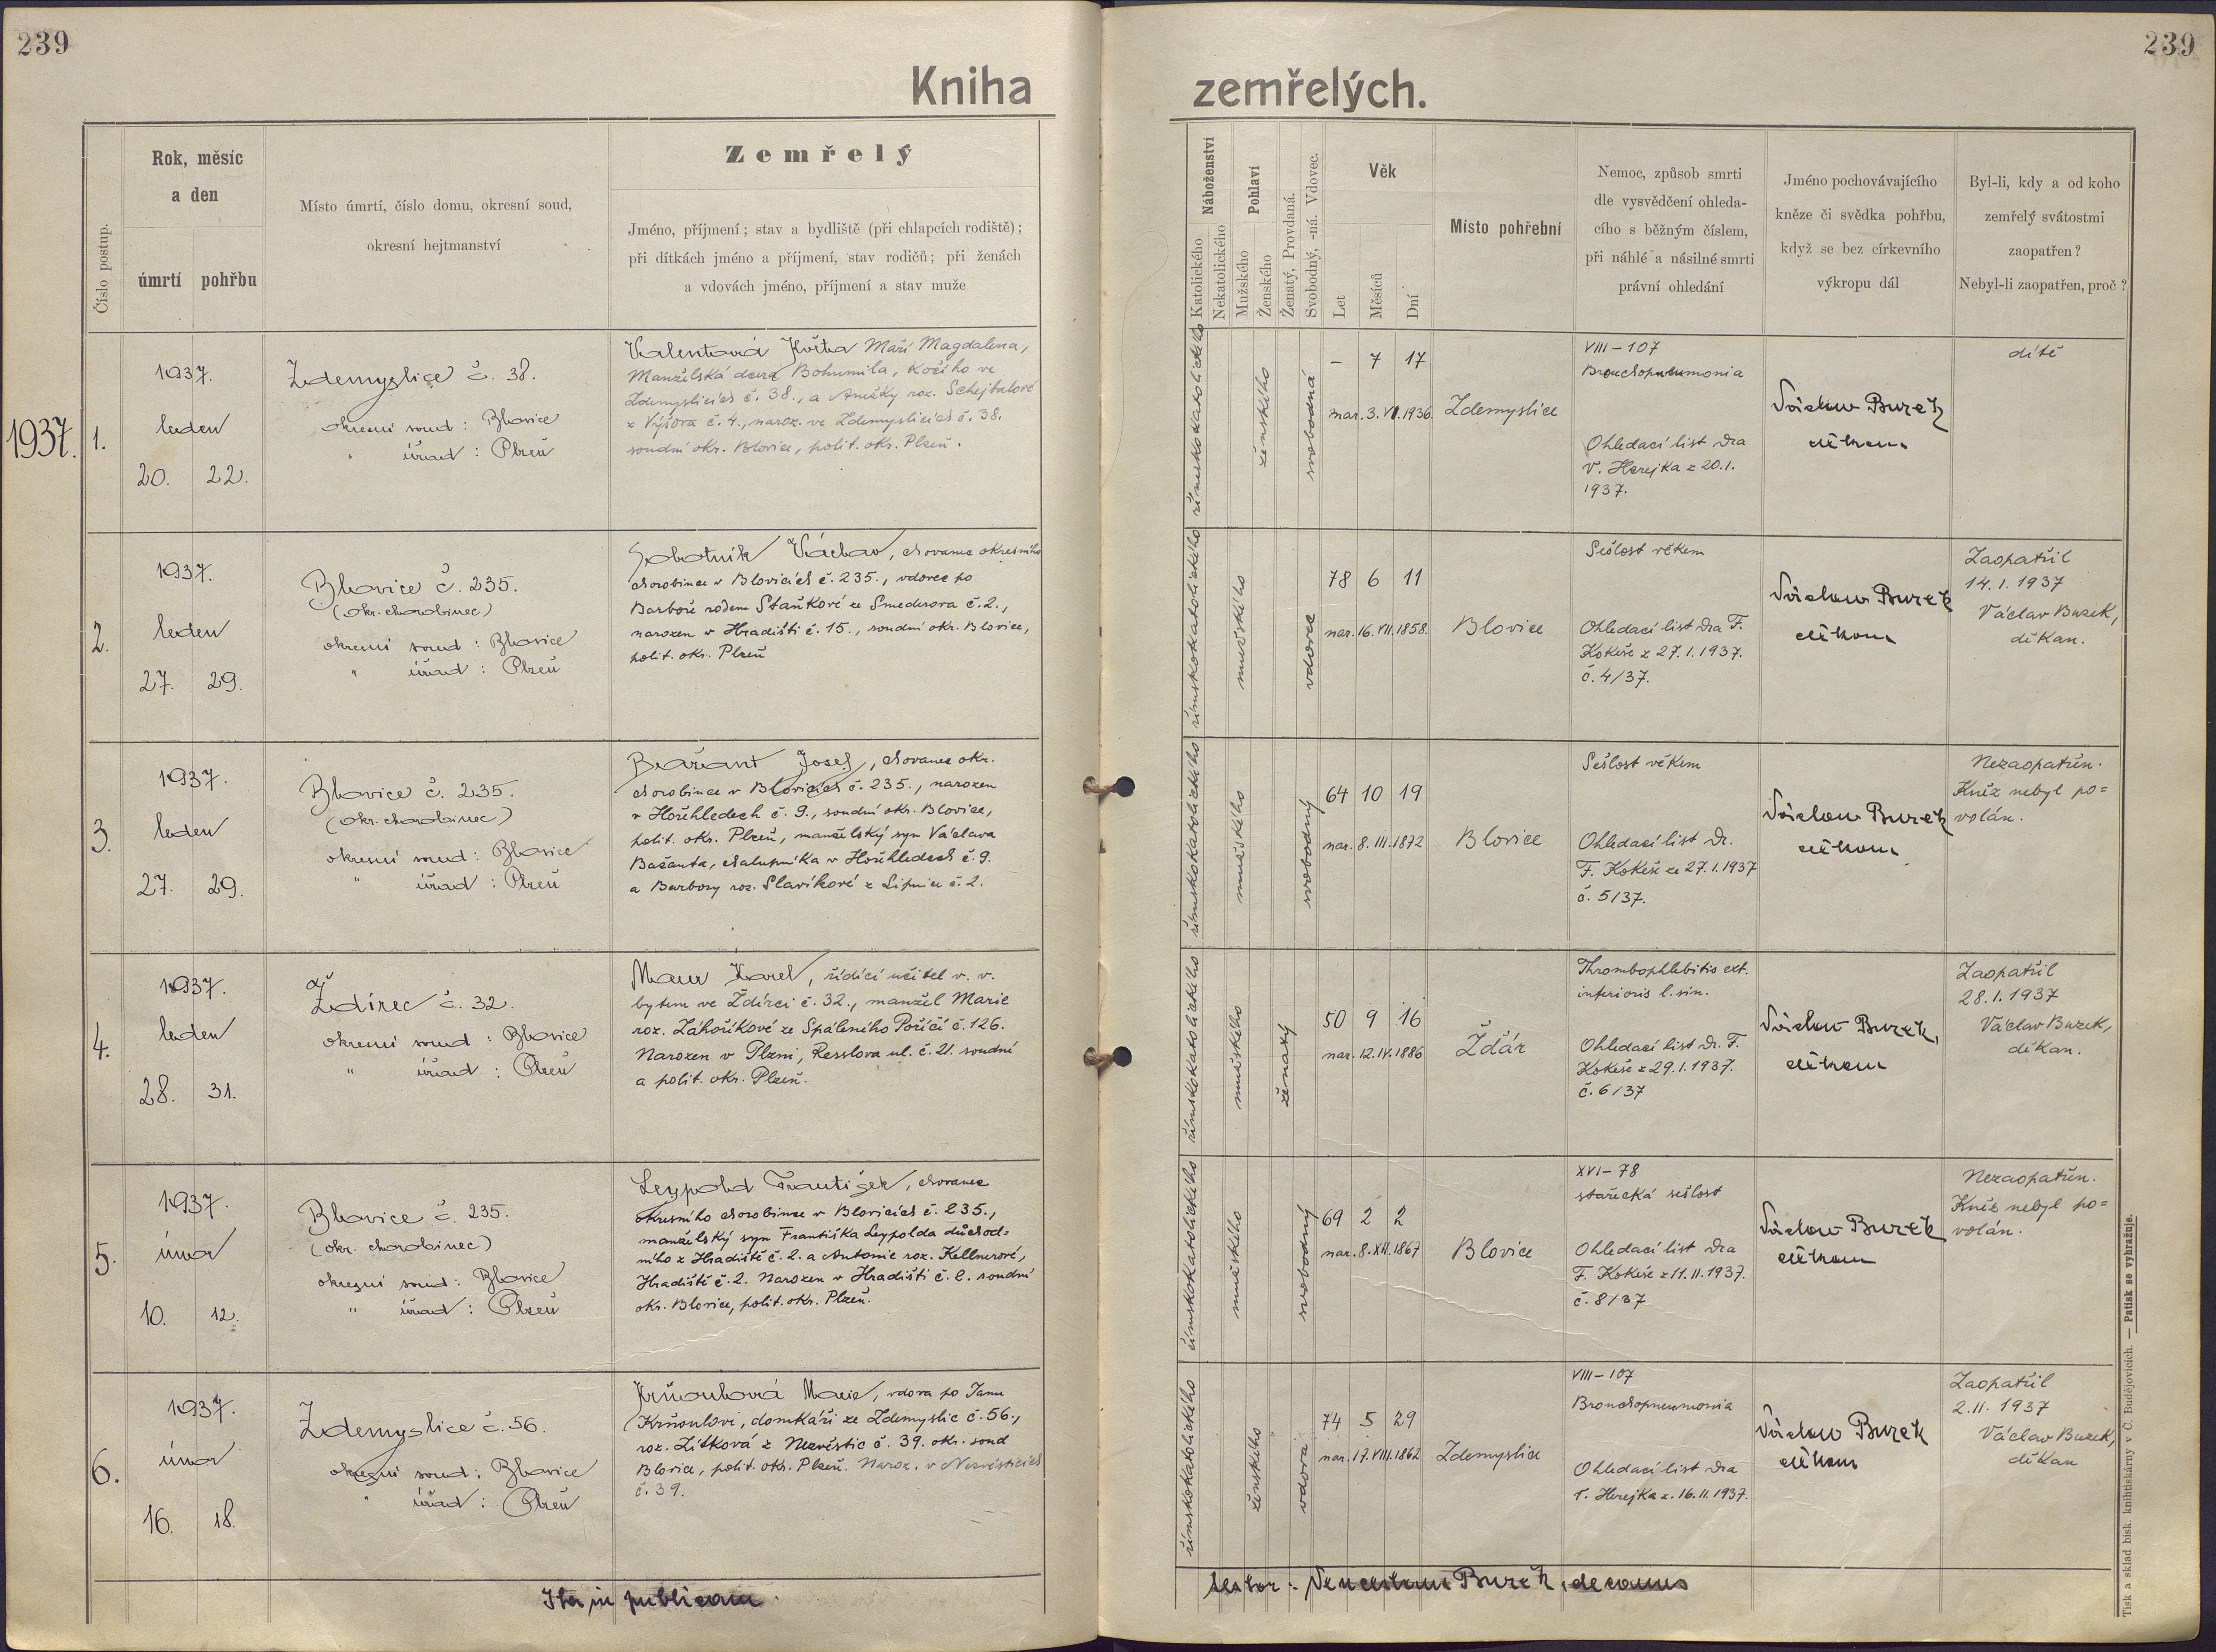 239
239
Kniha zemřelých.
Číslo postup.
Rok, měsíc
a den
úmrtí pohřbu
Místo úmrtí, číslo domu, okresní soud,
okresní hejtmanství
Zemřelý
Jméno, příjmení; stav a bydliště (při chlapcích rodiště);
při dítkách jméno a příjmení, stav rodičů; při ženách
a vdovách jméno, příjmení a stav muže
Náboženství
Katolického
Nekatolického
Pohlaví
Mužského
Ženského
Ženatý, Provdaná.
Svobodný, -ná. Vdovec.
Věk
Let
Měsíců
Dní
Místo pohřební
Nemoc, způsob smrti
dle vysvědčení ohleda-
cího s běžným číslem,
při náhlé a násilné smrti
právní ohledání
Jméno pochovávajícího
kněze či svědka pohřbu,
když se bez církevního
výkropu dál
Byl-li, kdy a od koho
zemřelý svátostmi
zaopatřen?
Nebyl-li zaopatřen, proč?
1937.
1.
1937.
leden
20. 22.
Zdemyslice č. 38.
okresní soud: Blovice
" úřad: Plzeň
Valentová Květa Maří Magdalena,
Manželská dcera Bohumila, kočího ve
Zdemyslicích č. 38., a Anežky roz. Schejbalové
z Výšova č. 4., naroz. ve Zdemyslicích č. 38.
soudní okr. Blovice, polit. okr. Plzeň.
římskokatolického
ženského
svobodná
- 7 17
nar. 3. VI. 1936.
Zdemyslice
VIII-107
Bronchopneumonia
Ohledací list Dra
V. Herejka z 20.1.
1937.
Václav Burek
děkan
dítě
2.
1937.
leden
27. 29.
Blovice č. 235.
(okr. chorobinec)
okresní soud: Blovice
" úřad: Plzeň
Sobotník Václav, chovanec okresního
chorobince v Blovicích č. 235., vdovec po
Barboře rodem Staňkové ze Smederova č. 2.,
narozen v Hradišti č. 15., soudní okr. Blovice,
polit. okr. Plzeň
římskokatolického
mužského
vdovec
78 6 11
nar. 16. VII. 1858.
Blovice
Sešlost věkem
Ohledací list Dra F.
Kokeše z 27.1.1937.
č. 4/37.
Václav Burek
děkan
Zaopatřil
14.1.1937
Václav Burek,
děkan.
3.
1937.
leden
27. 29.
Blovice č. 235.
(okr. chorobinec)
okresní soud: Blovice
" úřad: Plzeň
Bažant Josef, chovanec okr.
chorobince v Blovicích č. 235., narozen
v Hořehledech č. 9., soudní okr. Blovice,
polit. okr. Plzeň, manželský syn Václava
Bažanta, chalupníka v Hořehledech č. 9.
a Barbory roz. Slavíkové z Lipnice č. 2.
římskokatolického
mužského
svobodný
64 10 19
nar. 8. III. 1872
Blovice
Sešlost věkem
Ohledací list Dr.
F. Kokeše ze 27.1.1937
č. 5/37.
Václav Burek
děkan
Nezaopatřen.
Kněz nebyl po=
volán.
4.
1937.
leden
28. 31.
Ždírec č. 32.
okresní soud: Blovice
" úřad: Plzeň
Maur Karel, řídící učitel v. v.
bytem ve Ždírci č. 32., manžel Marie
roz. Záhoříkové ze Spáleného Poříčí č. 126.
Narozen v Plzni, Resslova ul. č. 21. soudní
a polit. okr. Plzeň.
římskokatolického
mužského
ženatý
50 9 16
nar. 12. IV. 1886
Ždár
Thrombophlebitis ext.
inferioris l. sin.
Ohledací list Dr. F.
Kokeše z 29.1.1937.
č. 6/37
Václav Burek,
děkan
Zaopatřil
28.1.1937
Václav Burek,
děkan.
5.
1937.
únor
10. 12.
Blovice č. 235.
(okr. chorobinec)
okresní soud: Blovice
" úřad: Plzeň
Leypold František, chovanec
okresního chorobince v Blovicích č. 235.,
manželský syn Františka Leypolda důchod=
ního z Hradiště č. 2. a Antonie roz. Kellnerové,
Hradiště č. 2. Narozen v Hradišti č. 2. soudní
okr. Blovice, polit. okr. Plzeň.
římskokatolického
mužského
svobodný
69 2 2
nar. 8. XII. 1867
Blovice
XVI-78
stařecká sešlost
Ohledací list Dra
F. Kokeše z 11.II.1937.
č. 8/37
Václav Burek
děkan
Nezaopatřen.
Kněz nebyl po=
volán.
6.
1937.
únor
16. 18.
Zdemyslice č. 56.
okresní soud: Blovice
" úřad: Plzeň
Krňoulová Marie, vdova po Janu
Krňoulovi, domkáři ze Zdemyslic č. 56.,
roz. Zítková z Nezvěstic č. 39. okr. soud
Blovice, polit. okr. Plzeň. Naroz. v Nezvěsticích
č. 39.
římskokatolického
ženského
vdova
74 5 29
nar. 17. VIII. 1862
Zdemyslice
VIII-107
Bronchopneumonia
Ohledací list Dra
V. Herejka z. 16.II.1937.
Václav Burek
děkan
Zaopatřil
2.II.1937
Václav Burek,
děkan
Ita in publicam
testor: Venceslaus Burek, decanus
Tisk a sklad bisk. knihtiskárny v Č. Budějovicích. — Patisk se vyhražuje.